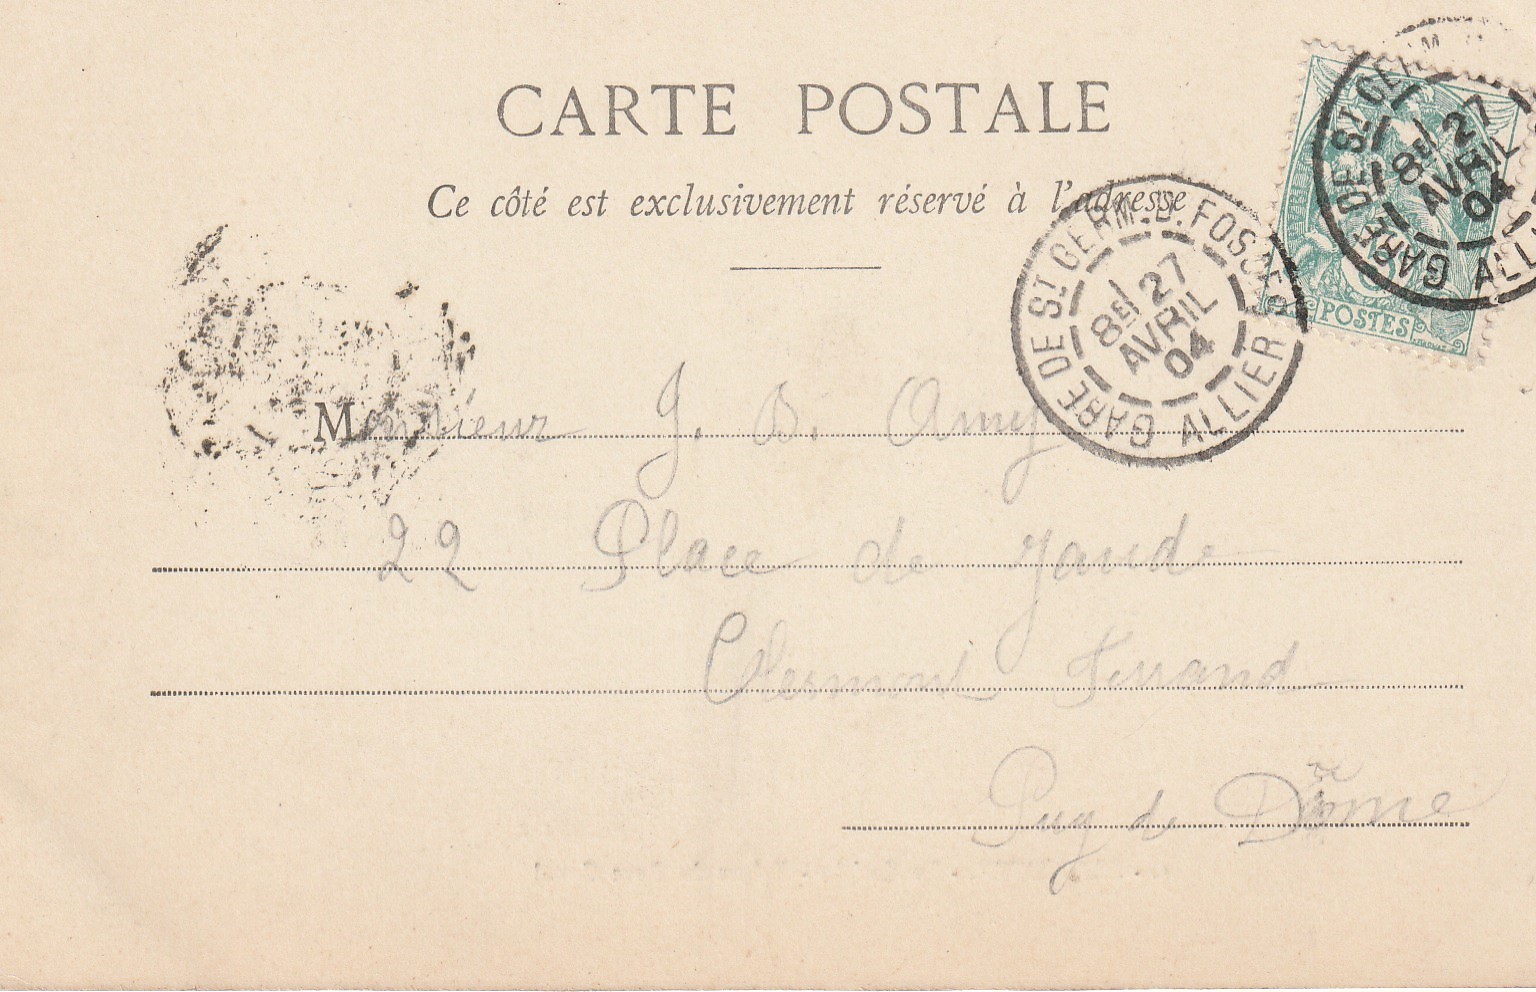 CARTE POSTALE
Ce côté est exclusivement réservé à l'adresse
GARE DE St GERM. D. FOSSÉS
8E/ 27
AVRIL
04
ALLIER
GARE DE St GERM
8E/ 27
AVRIL
04
ALLI
POSTES
Monsieur J. B. Amy
22 Place de Jaude
Clermont Ferrand
Puy de Dôme